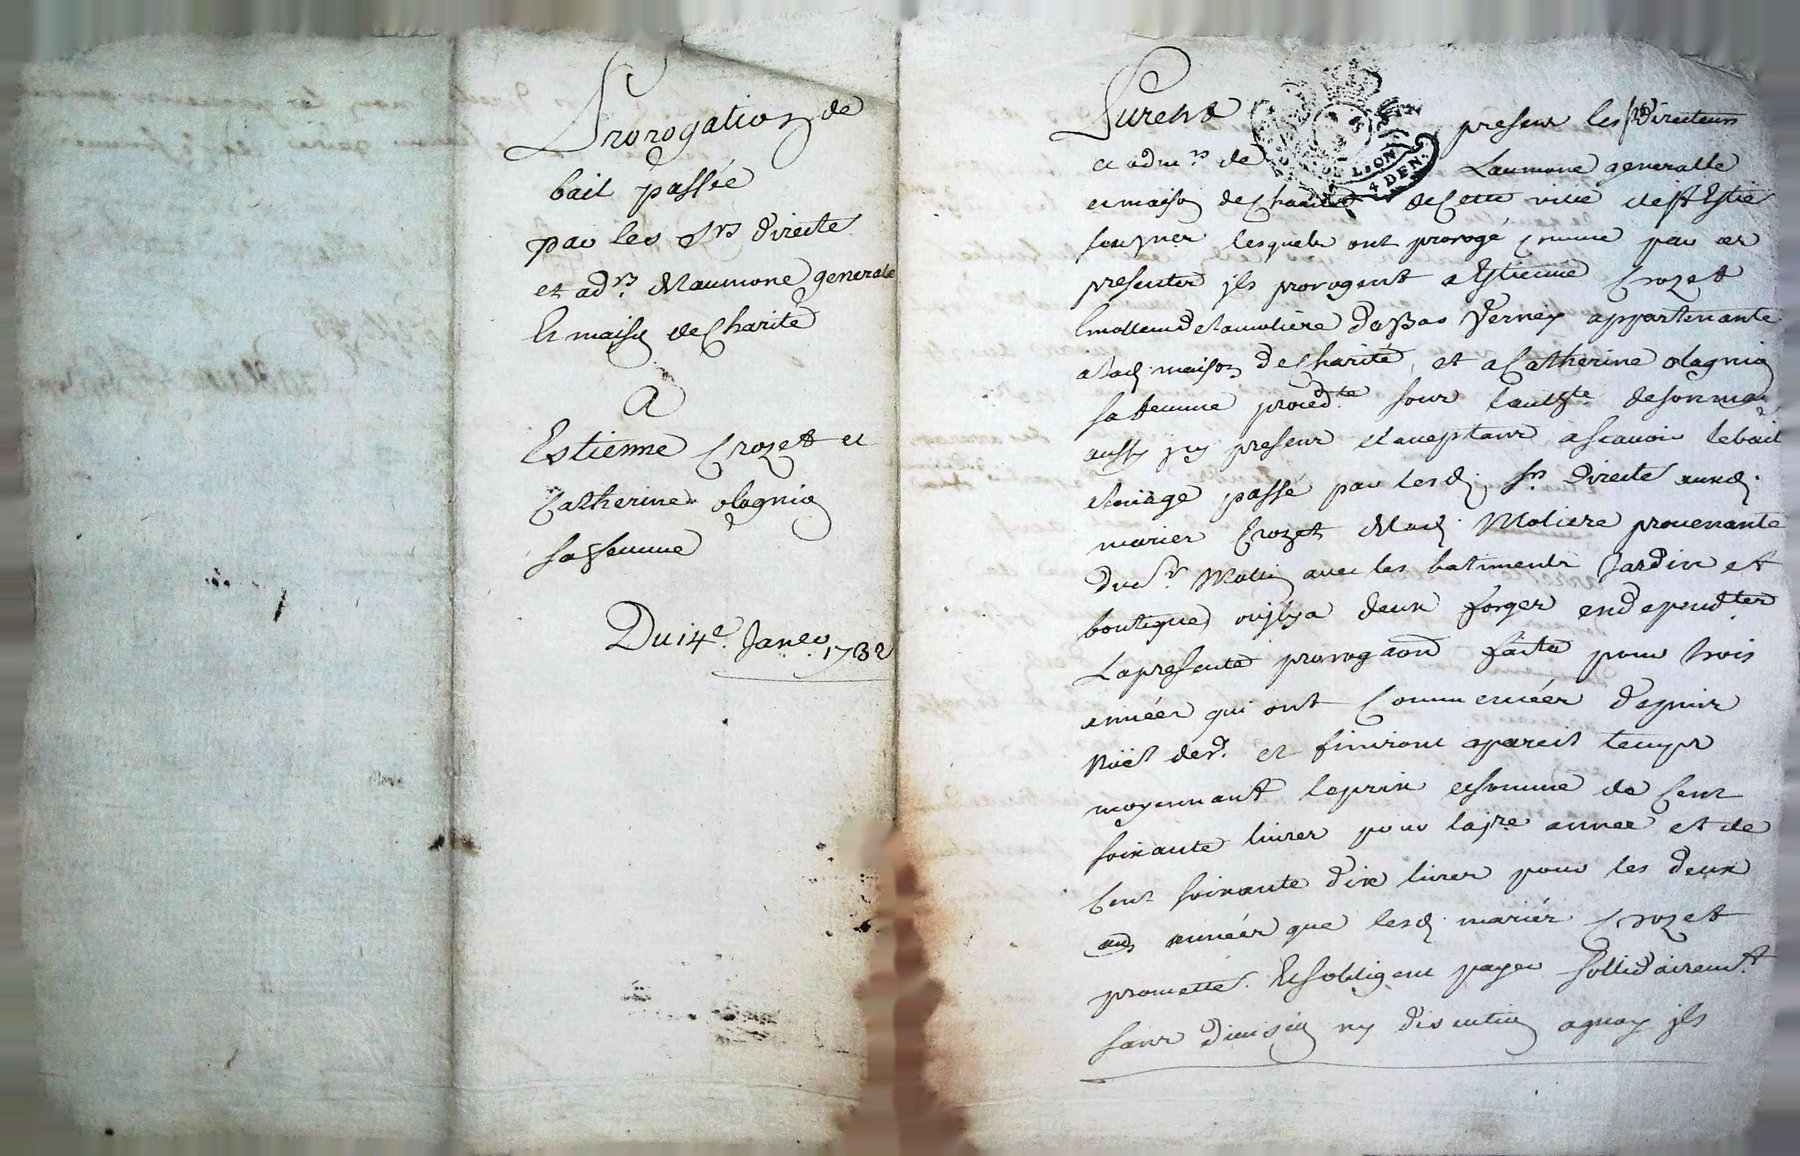 Prorogation de
bail passée
par les Srs directrs
et adrs de laumone generale
et maison de Charité
A
Estienne Crozet et
Catherine olagnier
sa femme
Du 14e. Janer. 1732
Furent present les Srs Directeurs
et admrs de Laumone generalle
et maison de Charité de Cette ville de St Estie
soussignes lesquels ont prorogé comme par ces
presentes jls prorogent a Estienne Crozet
du bas Vernay appartenante
a lad. maison de Charité, et a Catherine olagnier
sa femme proced.te sous lautte de son mary
aussy jcy present et acceptant ascavoir le bail
a louage passé par lesd. Srs Directrs auxd.
mariés Crozet de lad. Moliere prouenante
du Sr avec les batiments Jardin et
boutique ou jl y a deux forges en dependtes
La presente prorogaon faite pour trois
années qui ont Commencées depuis
Noël der. et finiront a pareil temps
moyennant le prix et somme de Cent
soixante livres pour la jre année et de
Cent soixante dix livres pour les deux
aus années que lesd. mariés Crozet
promette. et sobligent payer sollidairemt.
sans division ny discution a quoy jls
GEN. DE LION
4 DEN.